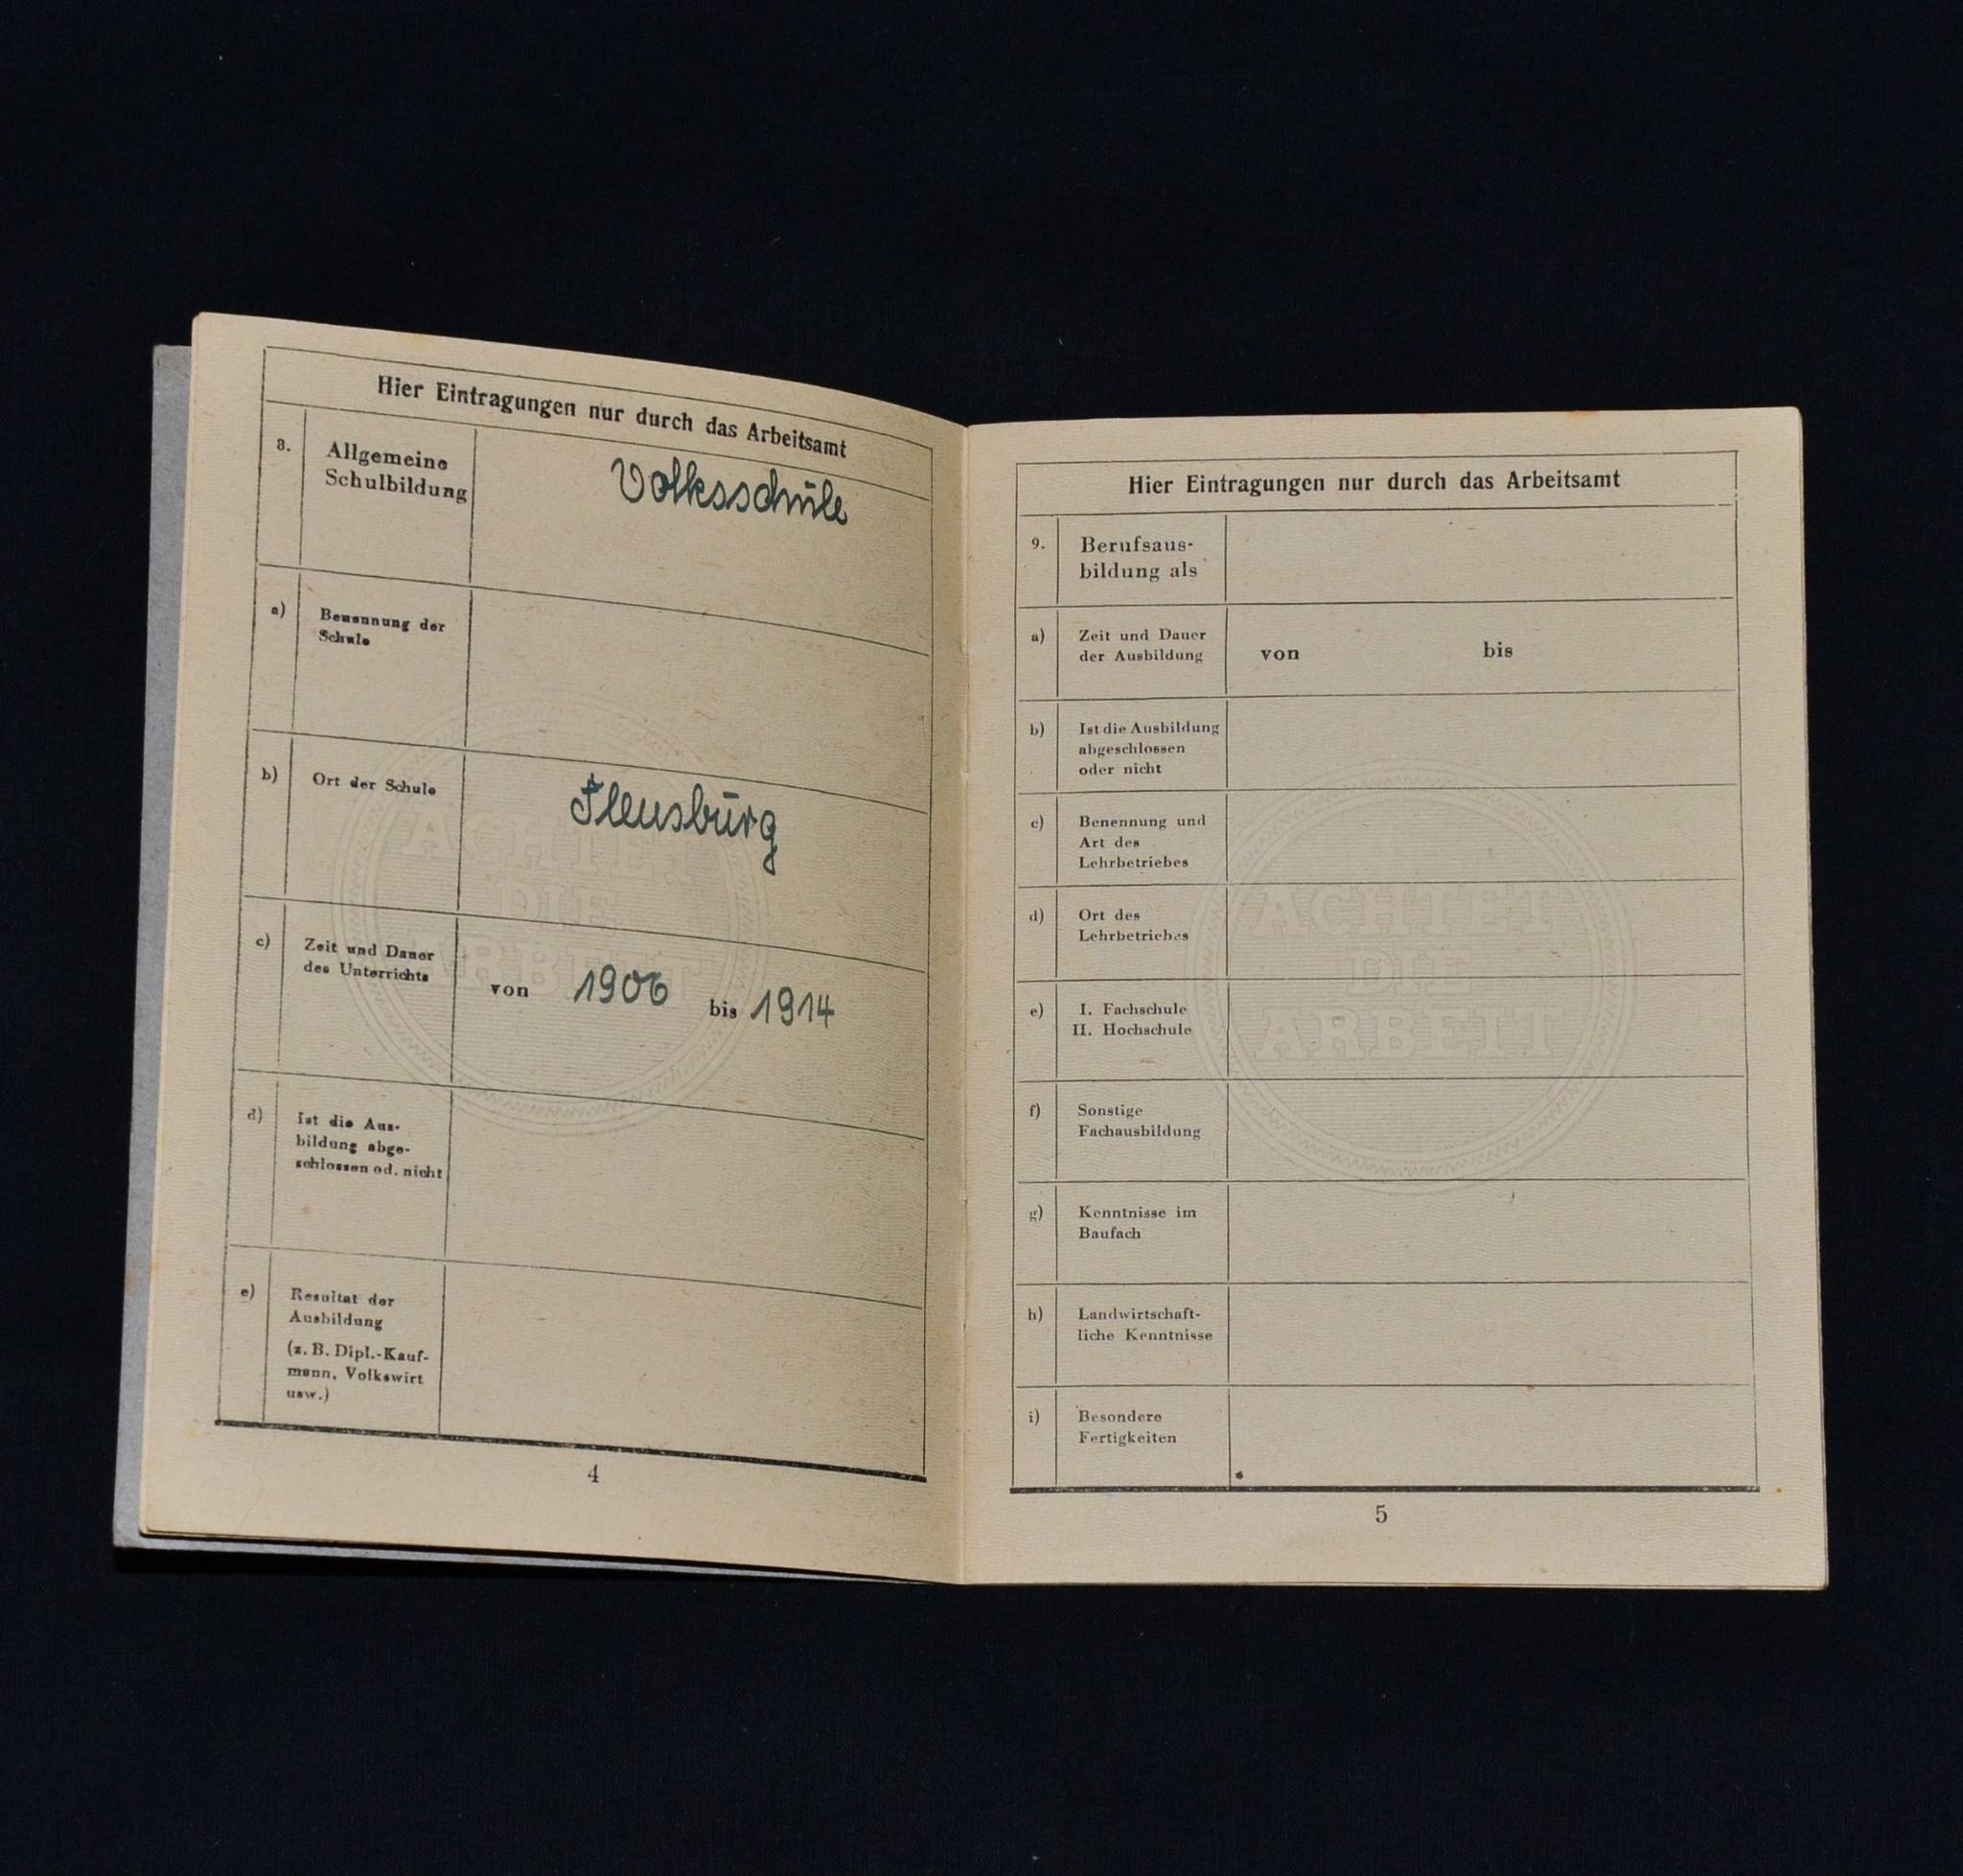 Hier Eintragungen nur durch das Arbeitsamt
8. Allgemeine
Schulbildung
Volksschule
a) Benennung der
Schule
b) Ort der Schule
Flensburg
c) Zeit und Dauer
des Unterrichts
von 1906 bis 1914
d) Ist die Aus-
bildung abge-
schlossen od. nicht
e) Resultat der
Ausbildung
(z. B. Dipl.-Kauf-
mann, Volkswirt
usw.)
ACHTET
DIE
ARBEIT
4
Hier Eintragungen nur durch das Arbeitsamt
9. Berufsaus-
bildung als
a) Zeit und Dauer
der Ausbildung
von bis
b) Ist die Ausbildung
abgeschlossen
oder nicht
c) Benennung und
Art des
Lehrbetriebes
d) Ort des
Lehrbetriebes
e) I. Fachschule
II. Hochschule
f) Sonstige
Fachausbildung
g) Kenntnisse im
Baufach
h) Landwirtschaft-
liche Kenntnisse
i) Besondere
Fertigkeiten
ACHTET
DIE
ARBEIT
5